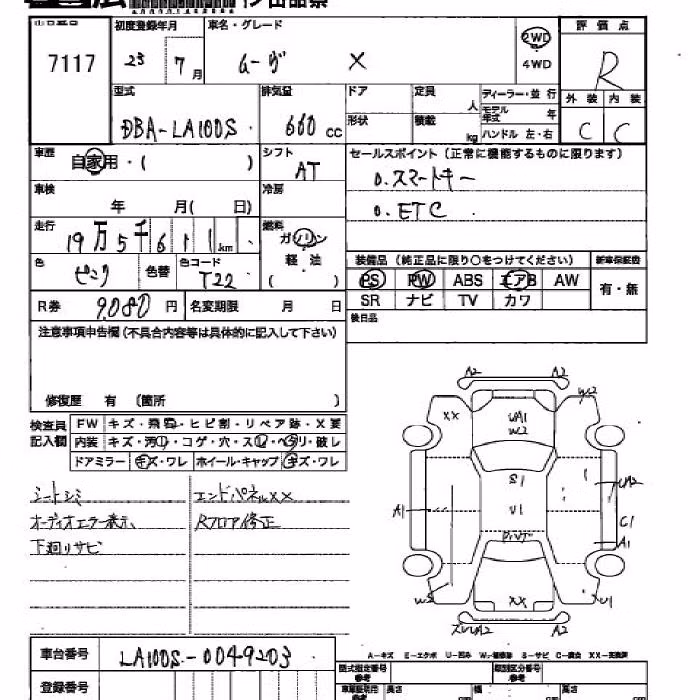 出品票
7117
初度登録年月 車名・グレード
23 7月 ムーヴ X
2WD
4WD
評価点
R
型式 排気量 ドア 定員 ディーラー・並行
人 モデル年式 年
DBA-LA100S 660cc 形状 積載 kg ハンドル 左・右
外装 内装
C C
車歴 自家用・( ) シフト AT
セールスポイント(正常に機能するものに限ります)
0.スマートキー
0.ETC
車検 年 月( 日) 冷房
走行 19万5千611km 燃料 ガソリン
軽油
( )
色 ピンク 色替 色コード T22
装備品(純正品に限り○をつけてください) 新車保証書
PS PW ABS エアB AW 有・無
SR ナビ TV カワ
R券 9,080円 名変期限 月 日
後日品
注意事項申告欄(不具合内容等は具体的に記入して下さい)
修復歴 有 (箇所 )
検査員記入欄 FW キズ・飛石・ヒビ割・リペア跡・X要
内装 キズ・汚れ・コゲ・穴・スレ・ヘタリ・破レ
ドアミラー キズ・ワレ ホイール・キャップ キズ・ワレ
シートシミ エンドパネルXX
オーディオエラー表示、 Rフロア修正
下廻りサビ
A2 A2
XX UA1 W2
W2
S1
A1 U1 UA2
C1
A1
W2 XX U1
A2
A-キズ E-エクボ U-凹み W-補修跡 S-サビ C-腐食 XX-交換済
車台番号 LA100S-0049203
型式指定番号 類別区分番号
登録番号 長さ 幅 高さ
cm cm cm